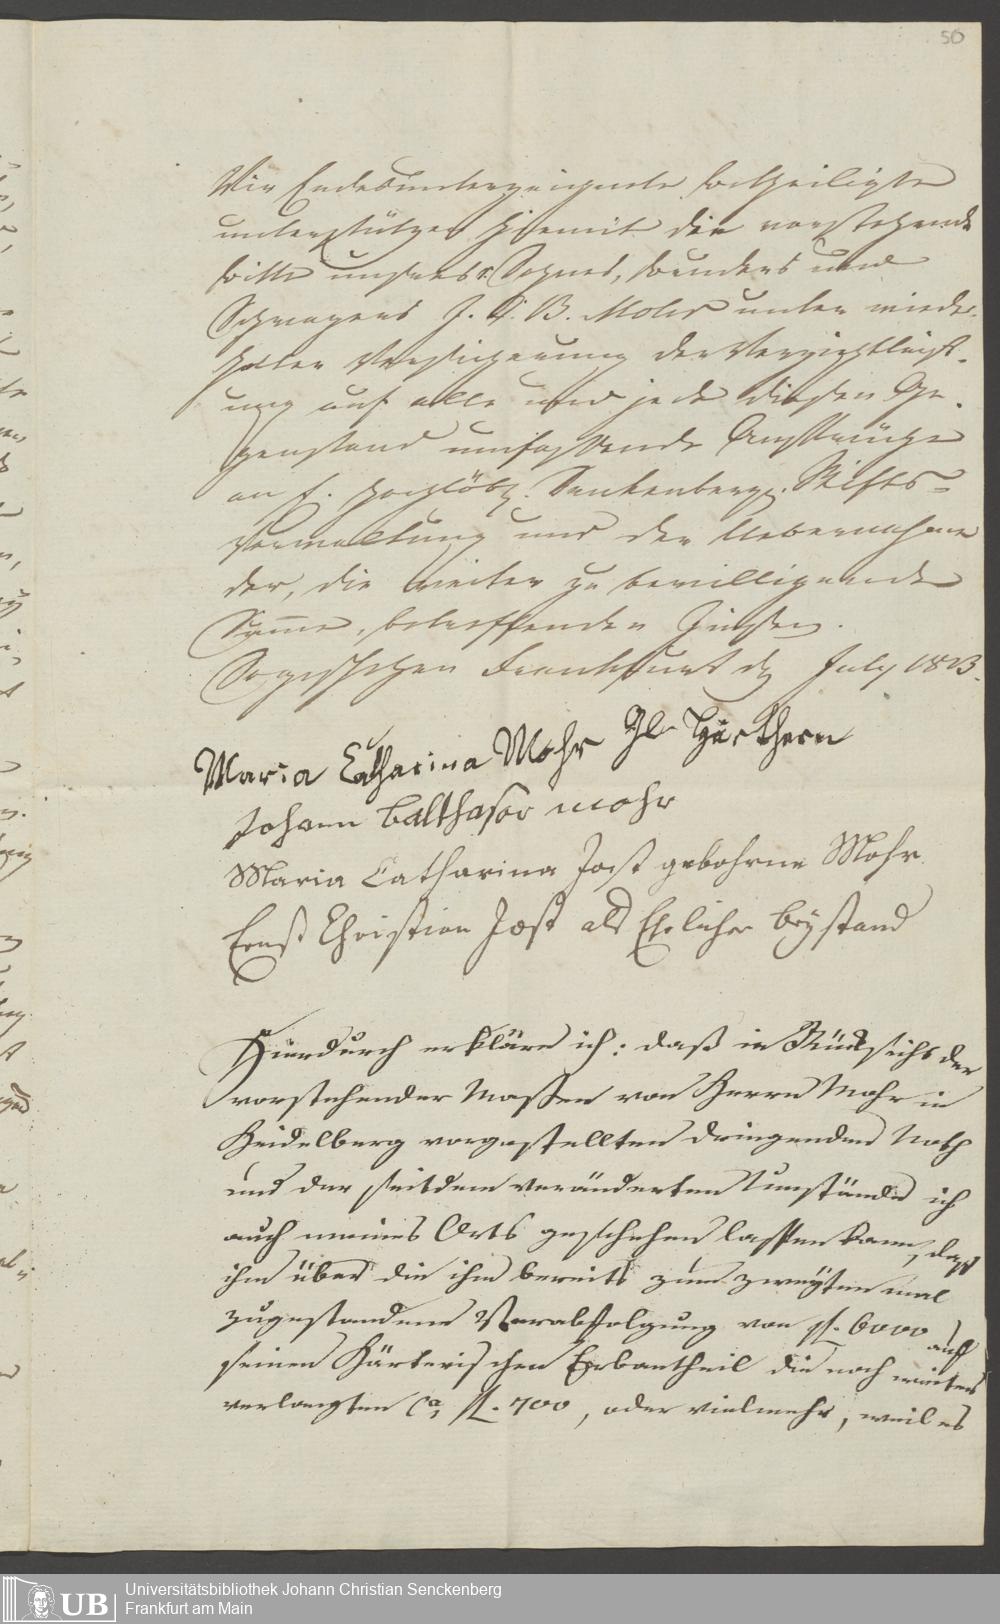 50
Wir Endesunterzeichnete Betheiligte
unterstützen hiemit die vorstehende
Bitte unseres Sohnes, Bruders und
Schwagers J. C. B. Mohr unter wieder-
holter Versicherung der Verzichtleist-
ung auf alle und jede diesen Ge-
genstand umfassende Ansprüche
an f. hochlöbl. Senkenberg. Stifts-
Verwaltung und der Uebernahme
der, die weiter zu bewilligende
Summe, betreffenden Zinsen.
So geschehen Frankfurt d July 1813.
Maria Catharina Mohr Gb Härthern
Johann balthasar mohr
Maria Catharina Jost gebohrne Mohr
Ernst Christian Jost als Ehelicher beystand
Hierdurch erkläre ich: daß in Rücksicht der
vorstehender Massen von Herrn Mohr in
Heidelberg vorgestellten dringenden Noth
und der seitdem veränderten Umstände ich
auch meines Orts geschehen lassen kann, daß
ihm über die ihm bereits zum zweytenmal
zugestandene Verabfolgung von fl. 6000 auf
seinen Härterischen Erbantheil die noch weiter
verlangten Ca fl. 700, oder vielmehr, weil es
UB
Universitätsbibliothek Johann Christian Senckenberg
Frankfurt am Main